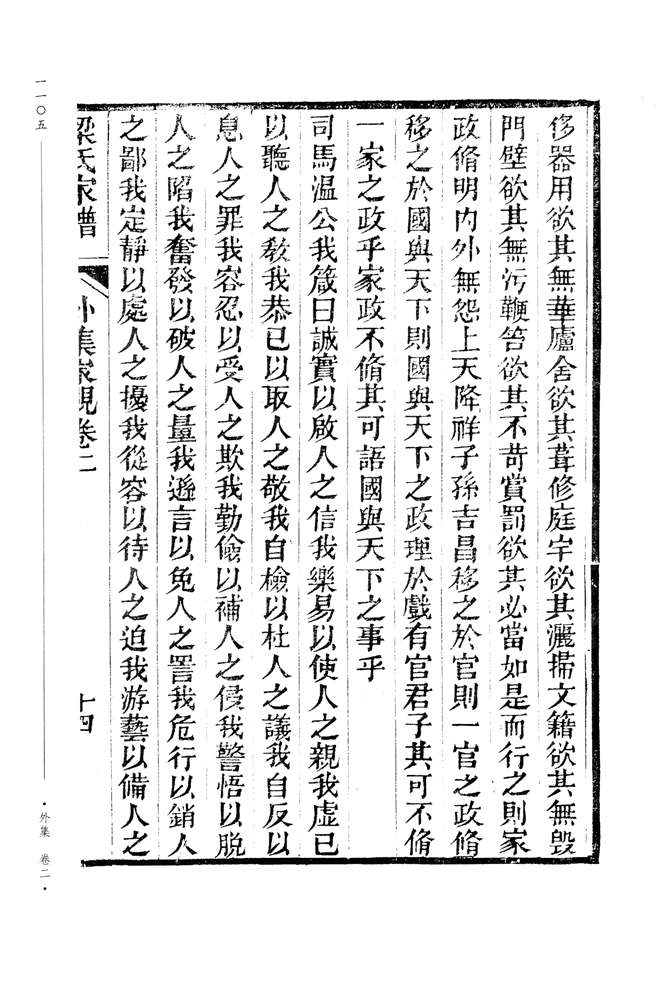 侈器用欲其無華廬舍欲其葺修庭宇欲其灑掃文籍欲其無毁
門壁欲其無污鞭笞欲其不苛賞罰欲其必當如是而行之則家
政脩明内外無怨上天降祥子孫吉昌移之於官則一官之政脩
移之於國與天下則國與天下之政理於戲有官君子其可不脩
一家之政乎家政不脩其可語國與天下之事乎
司馬温公我箴曰誠實以啟人之信我樂易以使人之親我虚已
以聽人之敎我恭已以取人之敬我自檢以杜人之議我自反以
息人之罪我容忍以受人之欺我勤儉以補人之侵我警悟以脱
人之陷我奮發以破人之量我遜言以免人之詈我危行以銷人
之鄙我定靜以處人之擾我從容以待人之迫我游藝以備人之
梁氏家譜 外集家規卷二 十四
一一〇五 ·外集 卷二·